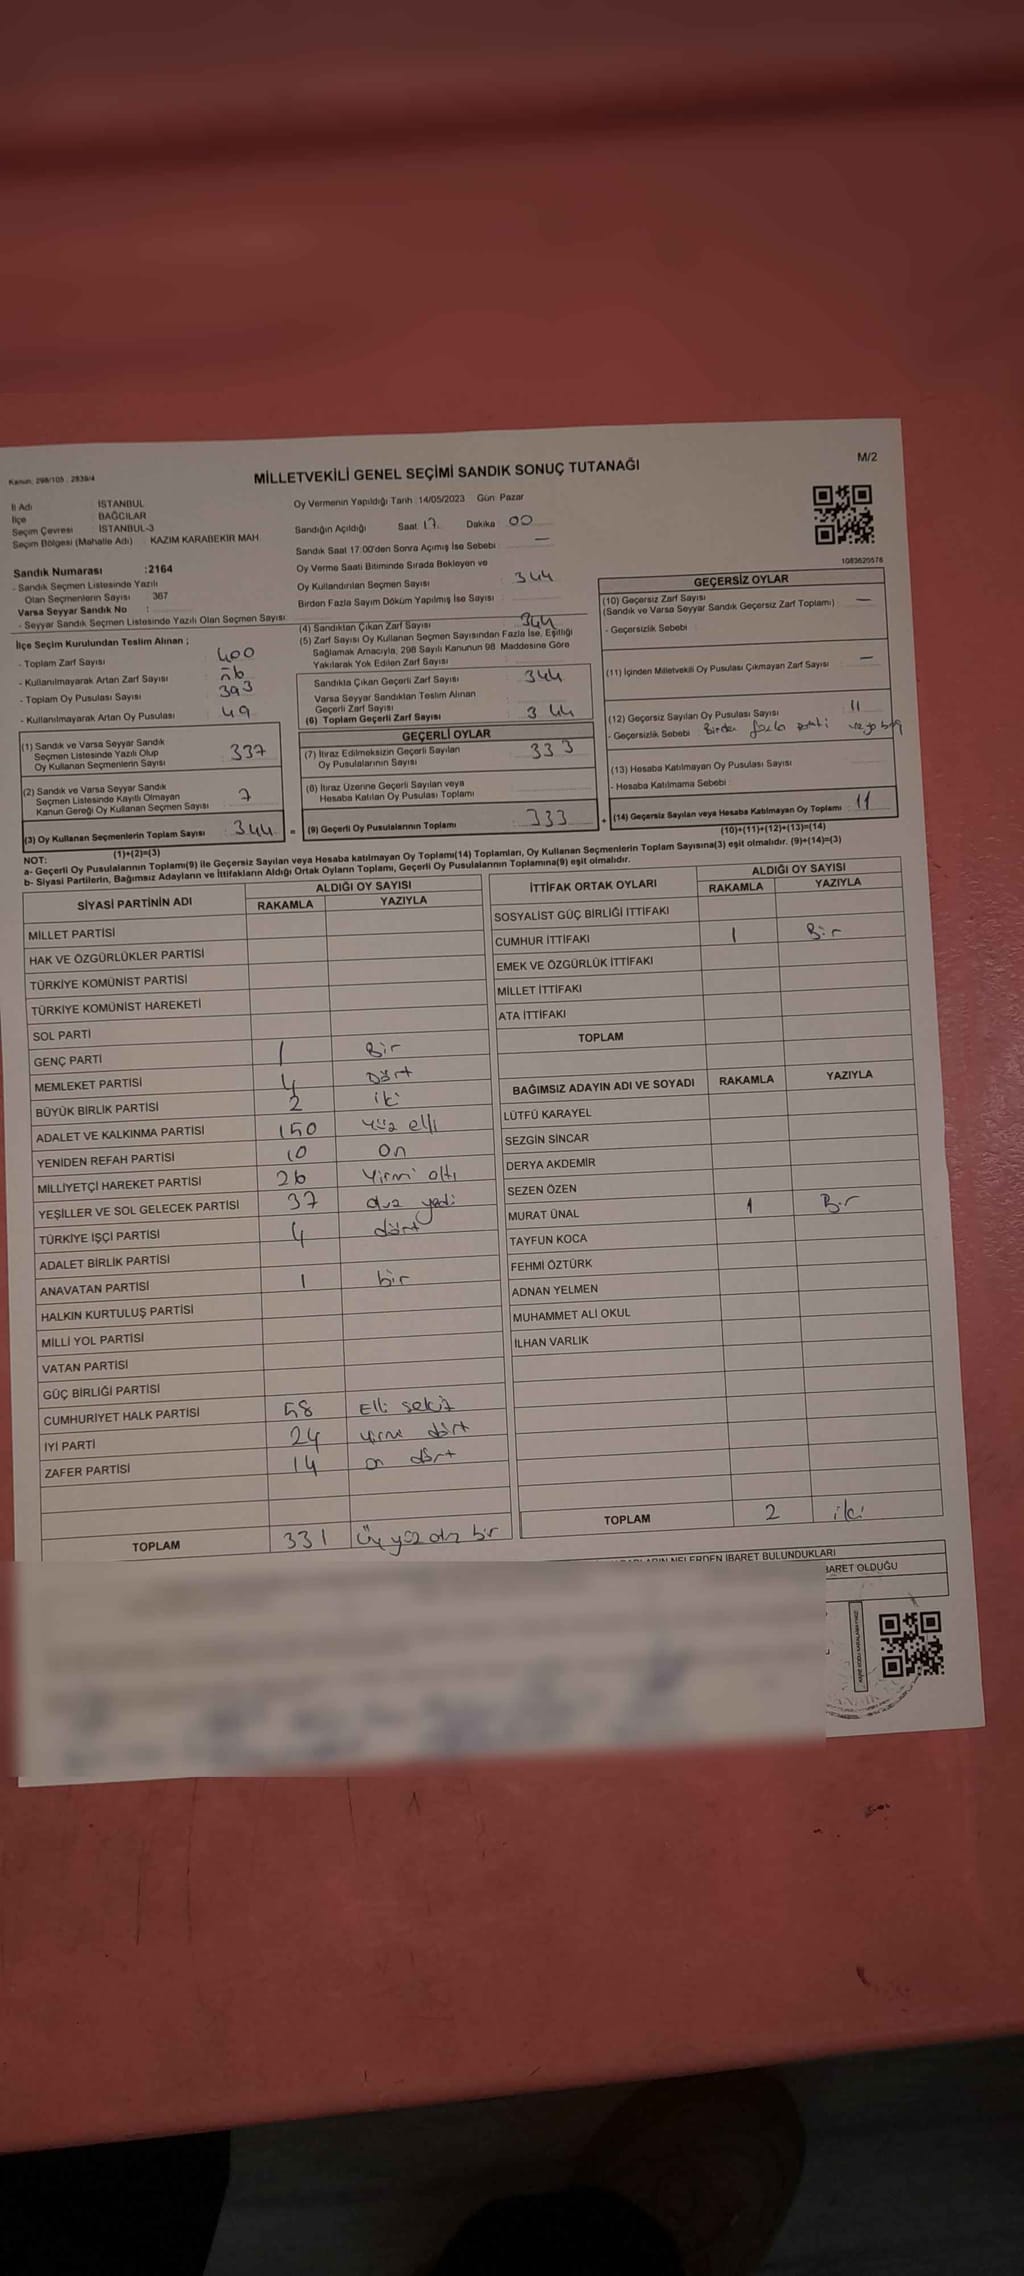 Kanun, 298/105 , 2839/4
MİLLETVEKİLİ GENEL SEÇİMİ SANDIK SONUÇ TUTANAĞI
M/2
İl Adı : İSTANBUL
İlçe : BAĞCILAR
Seçim Çevresi : İSTANBUL-3
Seçim Bölgesi (Mahalle Adı) : KAZIM KARABEKİR MAH.
Sandık Numarası :2164
- Sandık Seçmen Listesinde Yazılı
Olan Seçmenlerin Sayısı : 367
Varsa Seyyar Sandık No :
- Seyyar Sandık Seçmen Listesinde Yazılı Olan Seçmen Sayısı:
Oy Vermenin Yapıldığı Tarih :14/05/2023 Gün: Pazar
Sandığın Açıldığı Saat 17 Dakika 00
Sandık Saat 17:00'den Sonra Açımış İse Sebebi : —
Oy Verme Saati Bitiminde Sırada Bekleyen ve
Oy Kullandırılan Seçmen Sayısı : 344
Birden Fazla Sayım Döküm Yapılmış İse Sayısı :
1083620576
İlçe Seçim Kurulundan Teslim Alınan ;
- Toplam Zarf Sayısı : 400
- Kullanılmayarak Artan Zarf Sayısı :
- Toplam Oy Pusulası Sayısı : 393
- Kullanılmayarak Artan Oy Pusulası : 49
(1) Sandık ve Varsa Seyyar Sandık
Seçmen Listesinde Yazılı Olup
Oy Kullanan Seçmenlerin Sayısı : 337
(2) Sandık ve Varsa Seyyar Sandık
Seçmen Listesinde Kayıtlı Olmayan
Kanun Gereği Oy Kullanan Seçmen Sayısı : 7
(3) Oy Kullanan Seçmenlerin Toplam Sayısı : 344 =
(1)+(2)=(3)
(4) Sandıktan Çıkan Zarf Sayısı : 344
(5) Zarf Sayısı Oy Kullanan Seçmen Sayısından Fazla İse, Eşitliği
Sağlamak Amacıyla, 298 Sayılı Kanunun 98. Maddesine Göre
Yakılarak Yok Edilen Zarf Sayısı :
Sandıkta Çıkan Geçerli Zarf Sayısı : 344
Varsa Seyyar Sandıktan Teslim Alınan
Geçerli Zarf Sayısı :
(6) Toplam Geçerli Zarf Sayısı : 344
GEÇERLİ OYLAR
(7) İtiraz Edilmeksizin Geçerli Sayılan
Oy Pusulalarının Sayısı : 333
(8) İtiraz Üzerine Geçerli Sayılan veya
Hesaba Katılan Oy Pusulası Toplamı :
(9) Geçerli Oy Pusulalarının Toplamı : 333 +
GEÇERSİZ OYLAR
(10) Geçersiz Zarf Sayısı : —
(Sandık ve Varsa Seyyar Sandık Geçersiz Zarf Toplamı)
- Geçersizlik Sebebi :
(11) İçinden Milletvekili Oy Pusulası Çıkmayan Zarf Sayısı : —
(12) Geçersiz Sayılan Oy Pusulası Sayısı : 11
- Geçersizlik Sebebi : Birden fazla parti veya boş
(13) Hesaba Katılmayan Oy Pusulası Sayısı :
- Hesaba Katılmama Sebebi :
(14) Geçersiz Sayılan veya Hesaba Katılmayan Oy Toplamı : 11
(10)+(11)+(12)+(13)=(14)
NOT:
a- Geçerli Oy Pusulalarının Toplamı(9) ile Geçersiz Sayılan veya Hesaba katılmayan Oy Toplamı(14) Toplamları, Oy Kullanan Seçmenlerin Toplam Sayısına(3) eşit olmalıdır. (9)+(14)=(3)
b- Siyasi Partilerin, Bağımsız Adayların ve İttifakların Aldığı Ortak Oyların Toplamı, Geçerli Oy Pusulalarının Toplamına(9) eşit olmalıdır.
SİYASİ PARTİNİN ADI ALDIĞI OY SAYISI
RAKAMLA YAZIYLA
MİLLET PARTİSİ
HAK VE ÖZGÜRLÜKLER PARTİSİ
TÜRKİYE KOMÜNİST PARTİSİ
TÜRKİYE KOMÜNİST HAREKETİ
SOL PARTİ
GENÇ PARTİ 1 Bir
MEMLEKET PARTİSİ 4 Dört
BÜYÜK BİRLİK PARTİSİ 2 iki
ADALET VE KALKINMA PARTİSİ 150 Yüz elli
YENİDEN REFAH PARTİSİ 10 On
MİLLİYETÇİ HAREKET PARTİSİ 26 Yirmi altı
YEŞİLLER VE SOL GELECEK PARTİSİ 37 otuz yedi
TÜRKİYE İŞÇİ PARTİSİ 4 dört
ADALET BİRLİK PARTİSİ
ANAVATAN PARTİSİ 1 bir
HALKIN KURTULUŞ PARTİSİ
MİLLİ YOL PARTİSİ
VATAN PARTİSİ
GÜÇ BİRLİĞİ PARTİSİ
CUMHURİYET HALK PARTİSİ 58 Elli sekiz
İYİ PARTİ 24 yirmi dört
ZAFER PARTİSİ 14 on dört
TOPLAM 331 Üç yüz otuz bir
İTTİFAK ORTAK OYLARI ALDIĞI OY SAYISI
RAKAMLA YAZIYLA
SOSYALİST GÜÇ BİRLİĞİ İTTİFAKI
CUMHUR İTTİFAKI 1 Bir
EMEK VE ÖZGÜRLÜK İTTİFAKI
MİLLET İTTİFAKI
ATA İTTİFAKI
TOPLAM
BAĞIMSIZ ADAYIN ADI VE SOYADI RAKAMLA YAZIYLA
LÜTFÜ KARAYEL
SEZGİN SİNCAR
DERYA AKDEMİR
SEZEN ÖZEN
MURAT ÜNAL 1 Bir
TAYFUN KOCA
FEHMİ ÖZTÜRK
ADNAN YELMEN
MUHAMMET ALİ OKUL
İLHAN VARLIK
TOPLAM 2 iki
NELERDEN İBARET BULUNDUKLARI
İBARET OLDUĞU